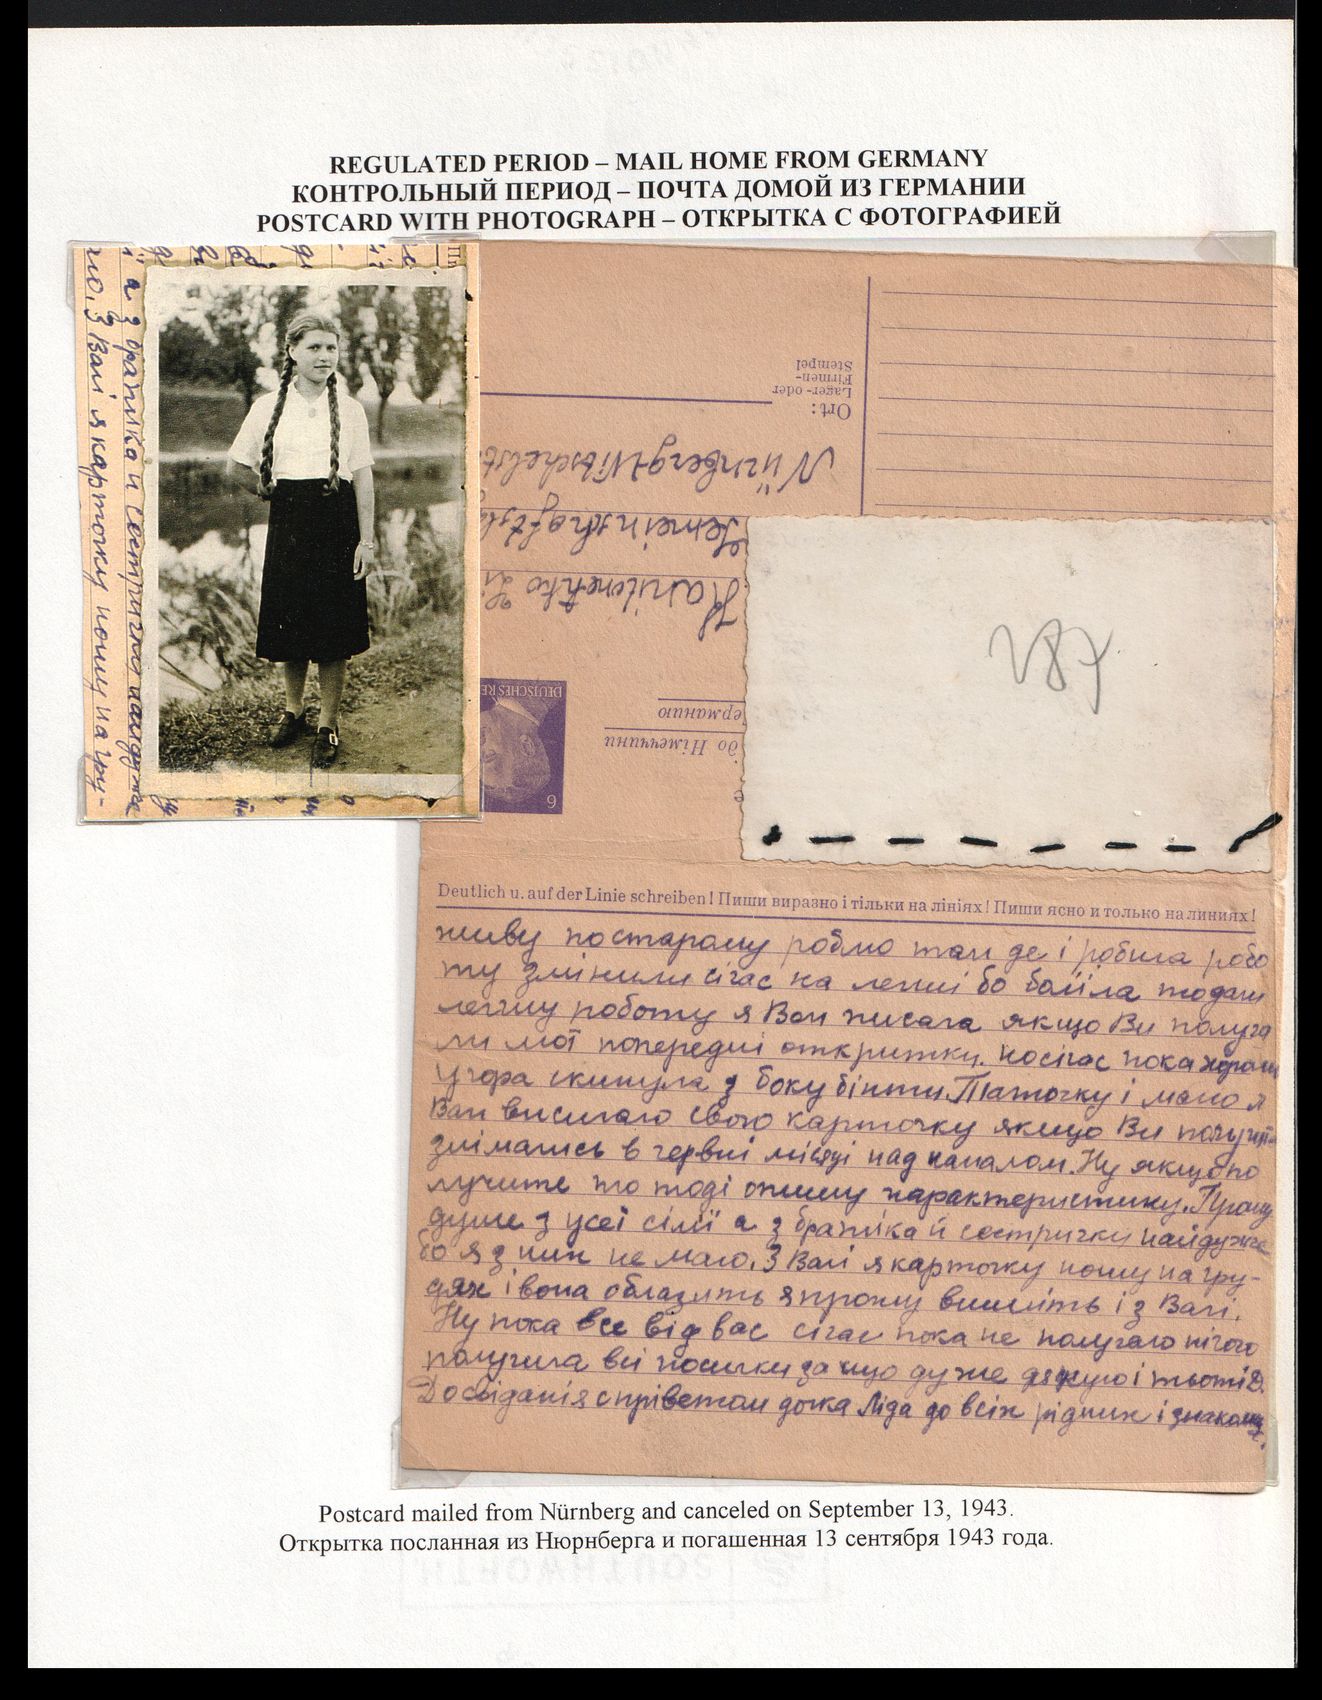 REGULATED PERIOD – MAIL HOME FROM GERMANY
КОНТРОЛЬНЫЙ ПЕРИОД – ПОЧТА ДОМОЙ ИЗ ГЕРМАНИИ
POSTCARD WITH PHOTOGRAPH – ОТКРЫТКА С ФОТОГРАФИЕЙ
а з братіка и сестрички найдужче
З Валі я карточку ношу на гру-
Ort:
Lager- oder
Firmen-
Stempel
Nürnberg-Witschelst
Gemeinschaftsl
Danilenko Li
DEUTSCHES RE
6
до Німеччини
Германию
287
Deutlich u. auf der Linie schreiben! Пиши виразно і тільки на лініях! Пиши ясно и только на линиях!
живу по старому роблю там де і робила робо
ту змінили сігас на легші бо боліла то дали
легшу роботу я Вам писала якщо Ви получа
ли мої попередні открытки. Но сігас пока хорош
учора скинула з боку бінти. Таточку і мамо я
Вам висилаю свою карточку якщо Ви получите
знімались в червні місяці над каналом. Ну якщо по
лучите то тоді опишу характеристику. Прошу
дуже з усеї сімї а з братіка й сестрички найдужче
бо я з них не маю. З Валі я карточку ношу на гру-
дях і вона облазить я прошу вишліть і з Валі.
Ну пока все від вас сігас пока не получаю нічого
получила всі посилки за що дуже дякую і тьоті Д.
До свіданія с прівєтом дочка Ліда до всіх рідних і знакомих.
Postcard mailed from Nürnberg and canceled on September 13, 1943.
Открытка посланная из Нюрнберга и погашенная 13 сентября 1943 года.